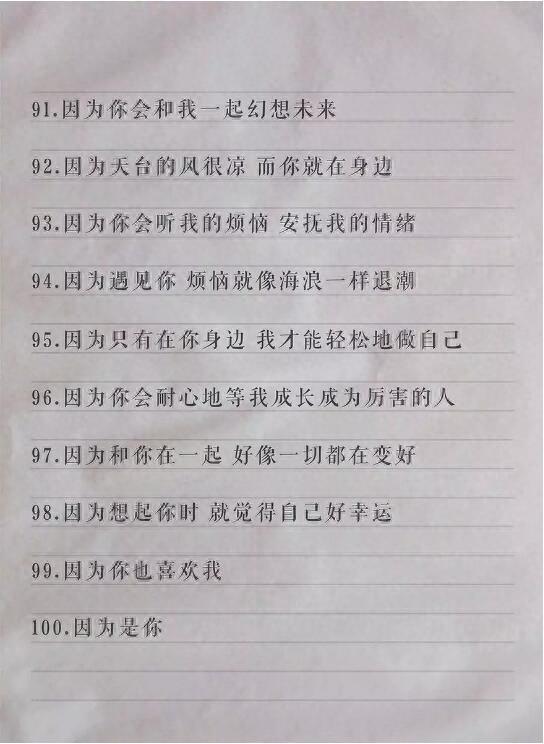 91.因为你会和我一起幻想未来
92.因为天台的风很凉 而你就在身边
93.因为你会听我的烦恼 安抚我的情绪
94.因为遇见你 烦恼就像海浪一样退潮
95.因为只有在你身边 我才能轻松地做自己
96.因为你会耐心地等我成长成为厉害的人
97.因为和你在一起 好像一切都在变好
98.因为想起你时 就觉得自己好幸运
99.因为你也喜欢我
100.因为是你